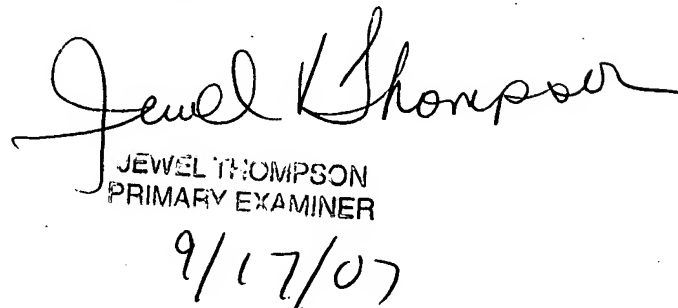 Jewel K Thompson
JEWEL THOMPSON
PRIMARY EXAMINER
9/17/07